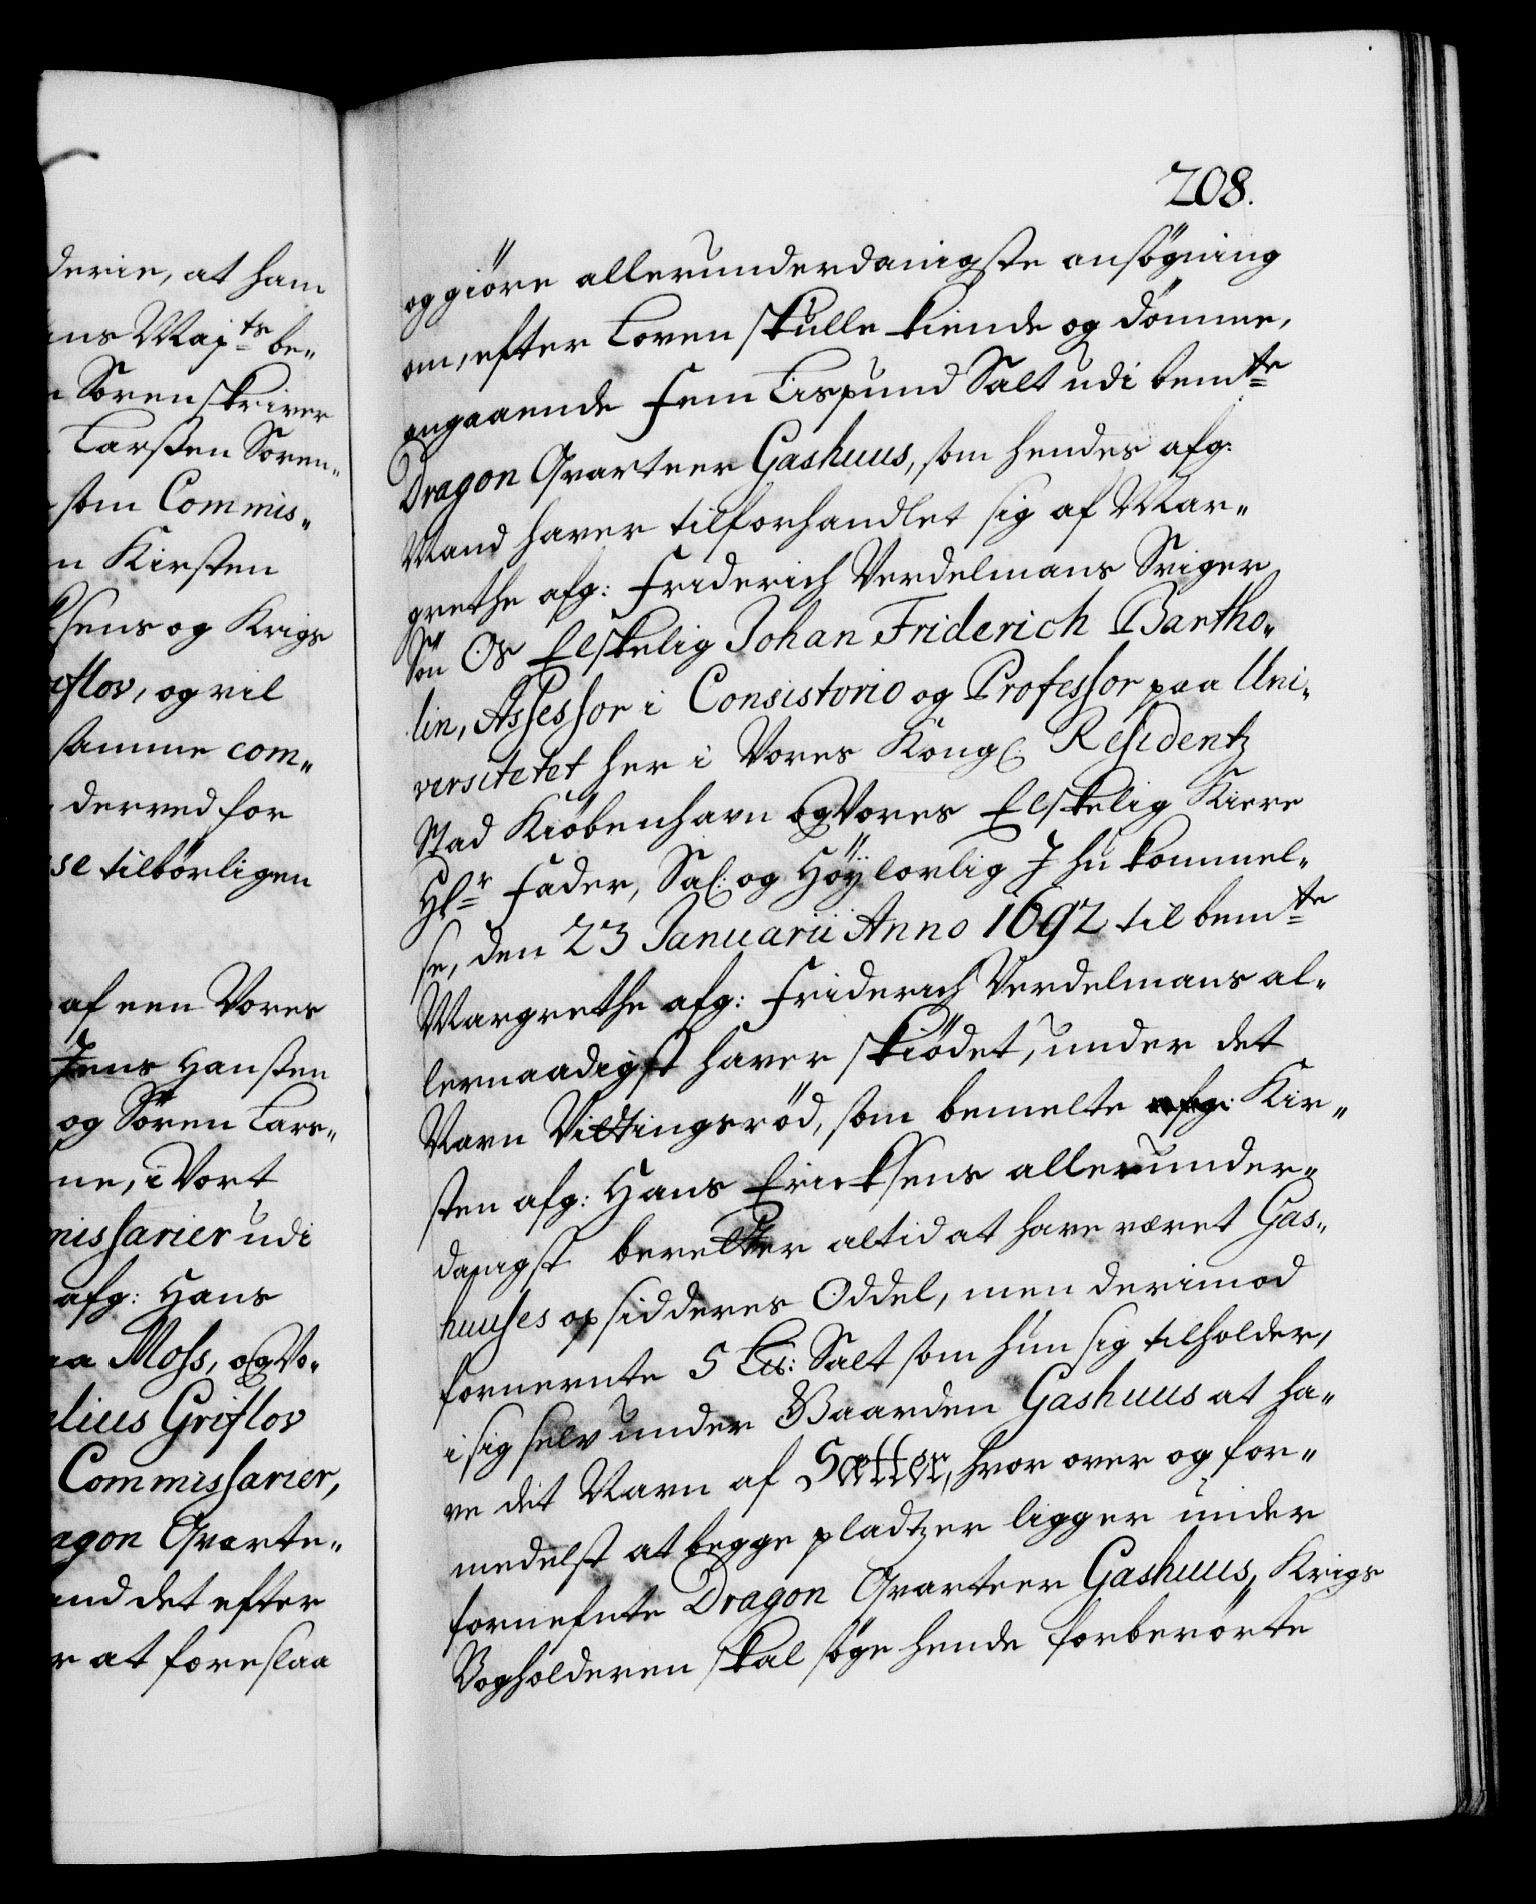 derie, at ham
ans Maj^ts be-
Sorenskriver
Larsen Soren-
som Commis-
n Kirsten
sens og Krigs
iflov, og vil
samme com-
derved for
se tilbørligen
af een Vores
Jens Hansten
og Sören Lars-
ne, i Vort
missarier udi
afg: Hans
aa Moss, og Vo-
elius Griflov
Commissarier,
agon Qvarte-
and det efter
r at foreslaa
208.
og giöre allerunderdanigste ansögning
om, efter Loven skulle kiende og dömme,
angaaende Fem Lispund Salt udi bem^te
Dragon Qvarteer Gashuus, som hendes afg:
Mand haver tilforhandlet sig af Mar-
grethe afg: Friderich Verdelmans Sviger
Sön Os Elskelig Johan Friderich Bartho-
lin, Assessor i Consistorio og Professor paa Uni-
versitetet her i Vores Kongl: Residentz
Stad Kiöbenhavn og Vores Elskelig Kiere
Hr Fader, Sal: og Höylovlig Ihukommel-
se, den 23 Januarii Anno 1692 til bem^te
Margrethe afg: Friderich Verdelmans al-
lernaadigst haver skiödet, under det
Navn Vittingsröd, som bemelte Kir-
sten afg: Hans Ericksens allerunder-
danigst beretter altid at have været Gas-
huuses opsidderes Oddel, men derimod
fornevnte 5 Lis: Salt som hun sig tilholder,
i sig selv under Gaarden Gashuus at ha-
ve det Navn af Sætter, hvor over og for-
medelst at begge pladtzer ligger under
fornefnte Dragon Qvarteer Gashuus, Krigs
Bogholderen skal söge hende forberörte